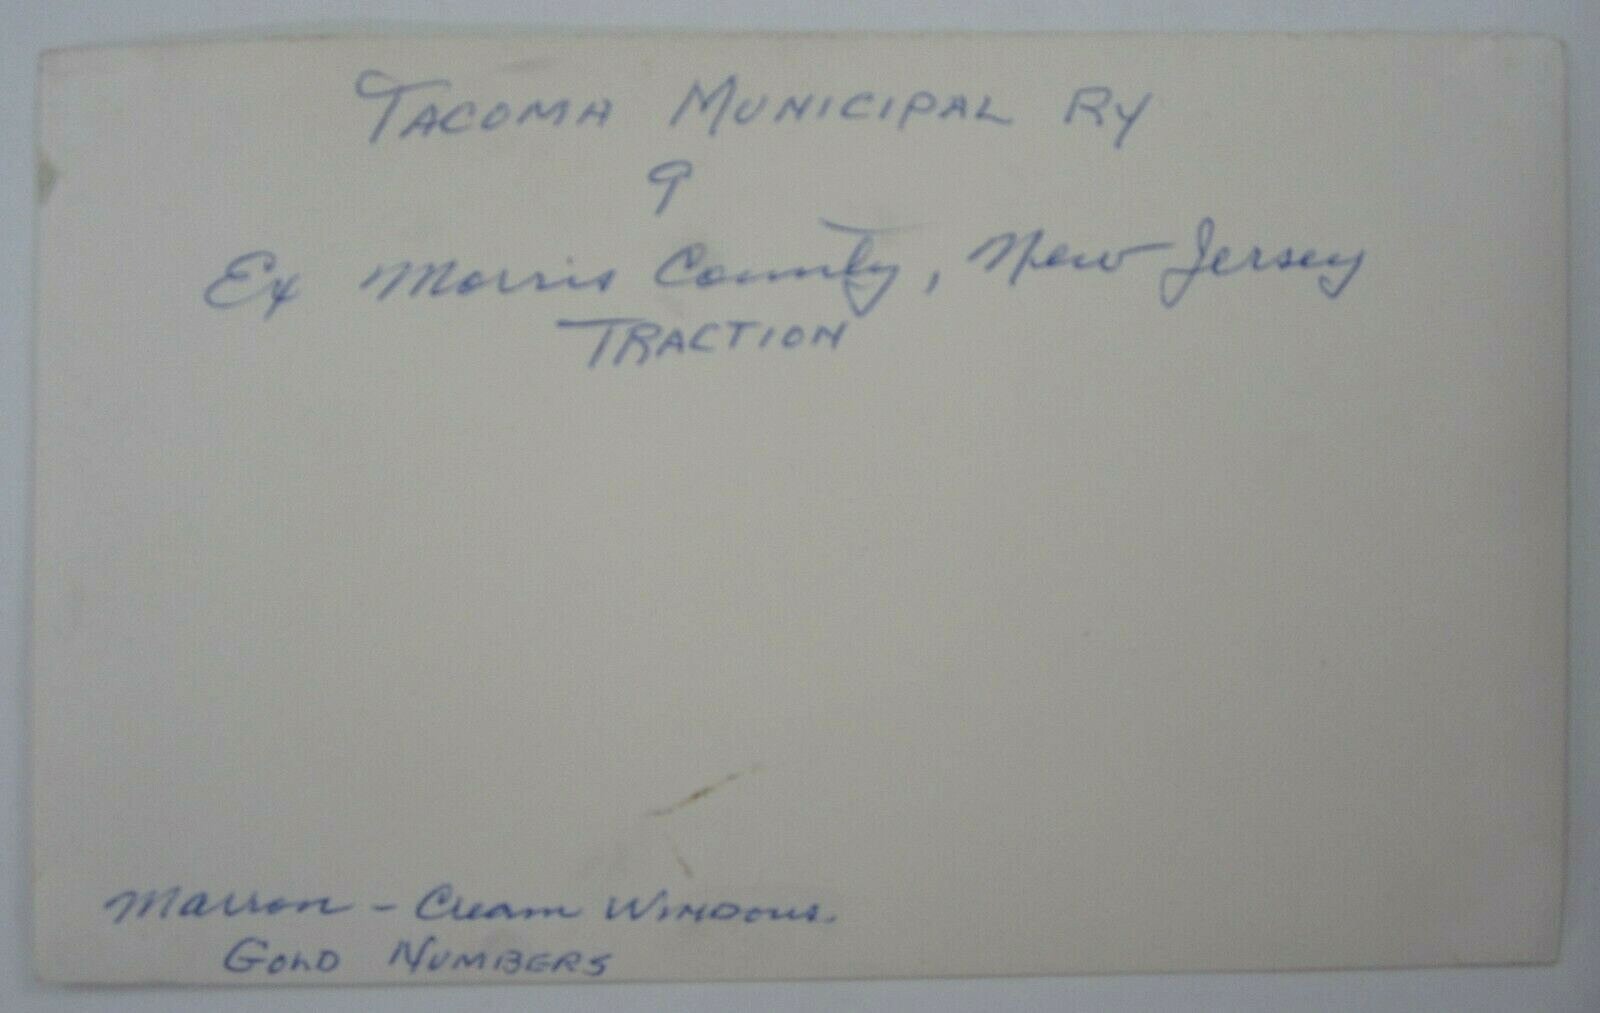 TACOMA MUNICIPAL RY
9
Ex Morris County, New Jersey
TRACTION
Marron - Cream WINDOWS.
GOLD NUMBERS